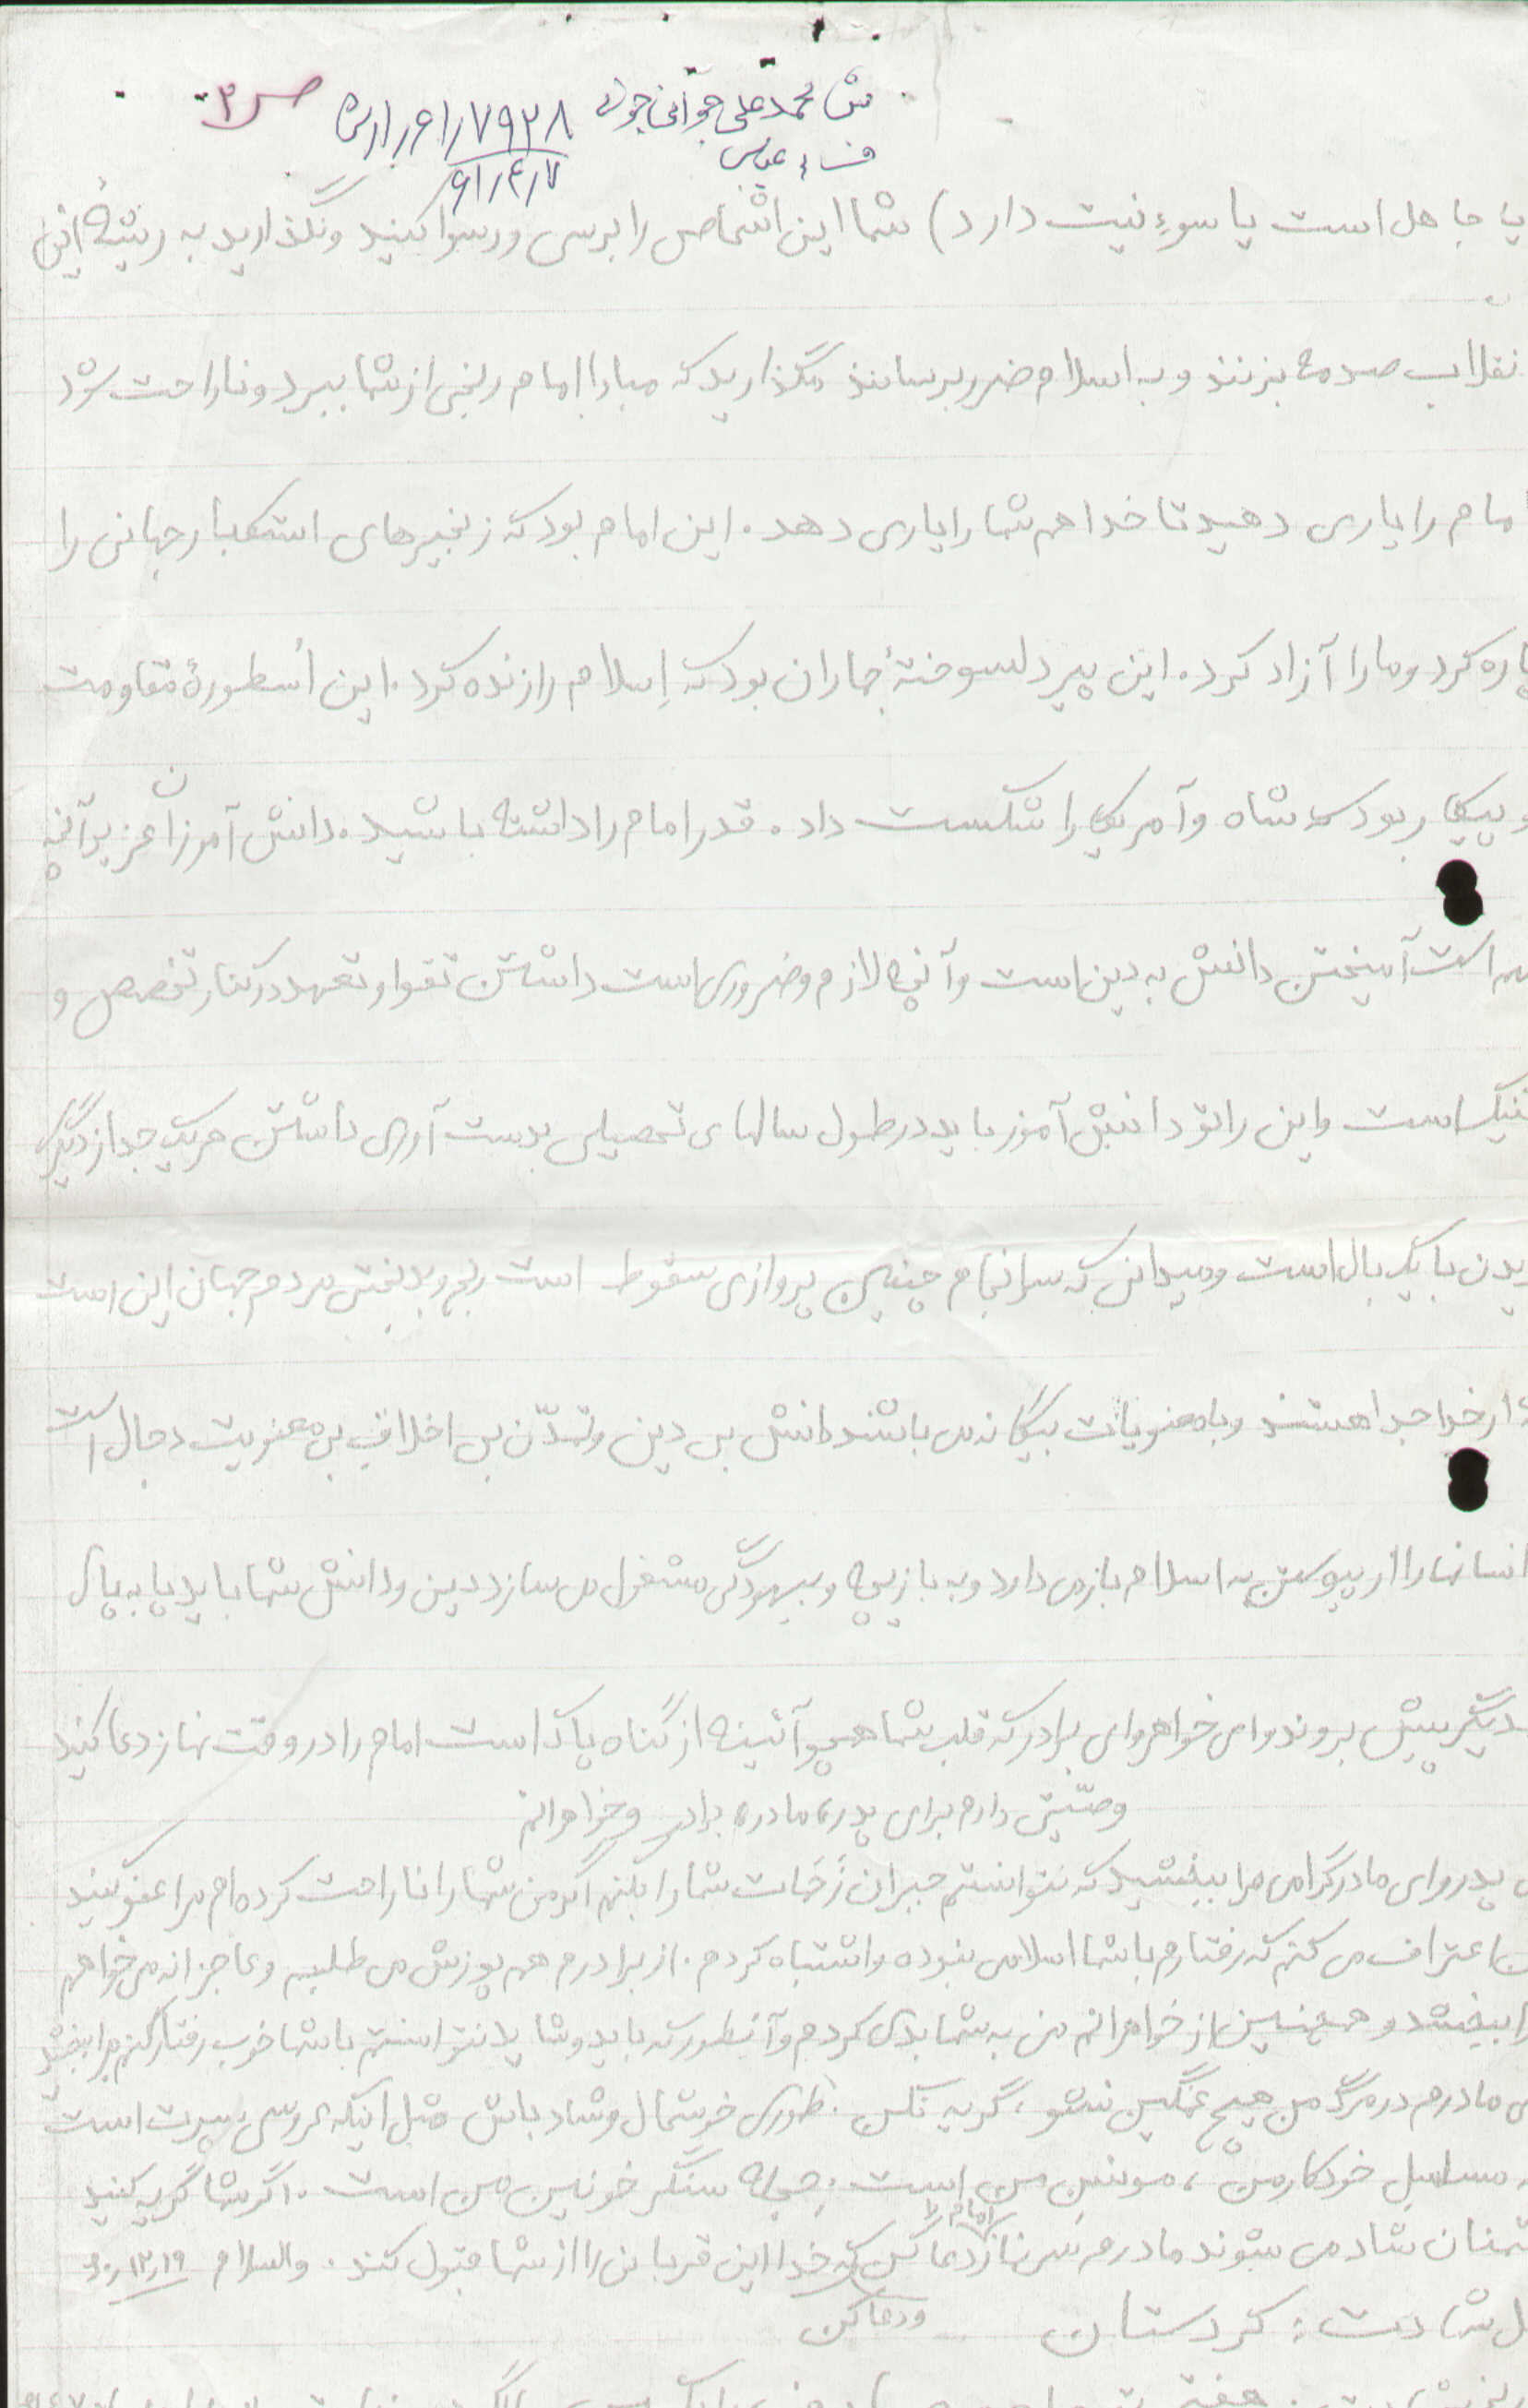 ش محمدعلی جوانی جونی ۷۹۳۸ر۶۱ر ص ۳
ف ء عباس ۶۱٫۴٫۷
یا جاهل است یا سوءِ نیت دارد) شما این اشخاص را برسی و رسوا کنید و نگذارید به ریشهٔ این
نقلاب صدمه بزنند و به اسلام ضرر برسانند مگذارید که مبادا امام رنجی از شما ببرد و ناراحت شود
مام را یاری دهید تا خدا هم شما را یاری دهد. این امام بود که زنجیرهای استکبار جهانی را
پاره کرد و ما را آزاد کرد. این پیر دلسوختهٔ جماران بود که اِسلام را زنده کرد. این اُسطورهٔ مقاومت
و پیکار بود که شاه و آمریکا را شکست داد. قدر امام را داشته باشید. دانش آموزان عزیز آنچه
است آمیختن دانش به دین است و آنچه لازم و ضروری است داشتن تقوا و تعهد در کنار تخصص و
تکنیک است و این را تو دانش آموز باید در طول سالهای تحصیلی بدست آوری داشتن هریک جدا از دیگری
یدن با یک بال است و میدانی که سرانجام چنین پروازی سقوط است رنج و بدبختی مردم جهان این است
از خدا جدا هستند و با معنویات بیگانه می باشند دانش بی دین و تمدّن بی اخلاق بی معنویت دجال است
انسانها را از پیوستن به اسلام باز می دارد و به بازیچه و بیهودگی مشغول می سازد دین و دانش شما باید پا به پای
دیگر پیش بروند و ای خواهر و ای برادر که قلب شما همچو آئینه از گناه پاک است امام را در وقت نماز دعا کنید
وصیّتی دارم برای پدر، مادر، برادر و خواهرانم
پدر و ای مادر گرامی مرا ببخشید که نتوانستم جبران زَحَمات شما را بکنم اگر من شما را ناراحت کرده ام مرا عفو کنید
اعتراف می کنم که رفتارم با شما اسلامی نبوده و اشتباه کردم. از برادرم هم پوزش می طلبم و عاجزانه می خواهم
را ببخشد و همچنین از خواهرانم من به شما بدی کردم و آنطور که باید و شاید نتوانستم با شما خوب رفتار کنم مرا ببخشید
مادرم در مرگ من هیچ غمگین نشو، گریه نکن. طوری خوشحال و شاد باش مثل اینکه عروسی پسرت است
مسلسلِ خودکار من، مونسِ من است. حجله سنگر خونین من است. اگر شما گریه کنید
دشمنان شاد می شوند مادرم سر نماز امام را دعا کن و دعا کن که خدا این قربانی را از شما قبول کند. والسلام ۶۰٫۱۲٫۱۹
ل شهادت: کردستان